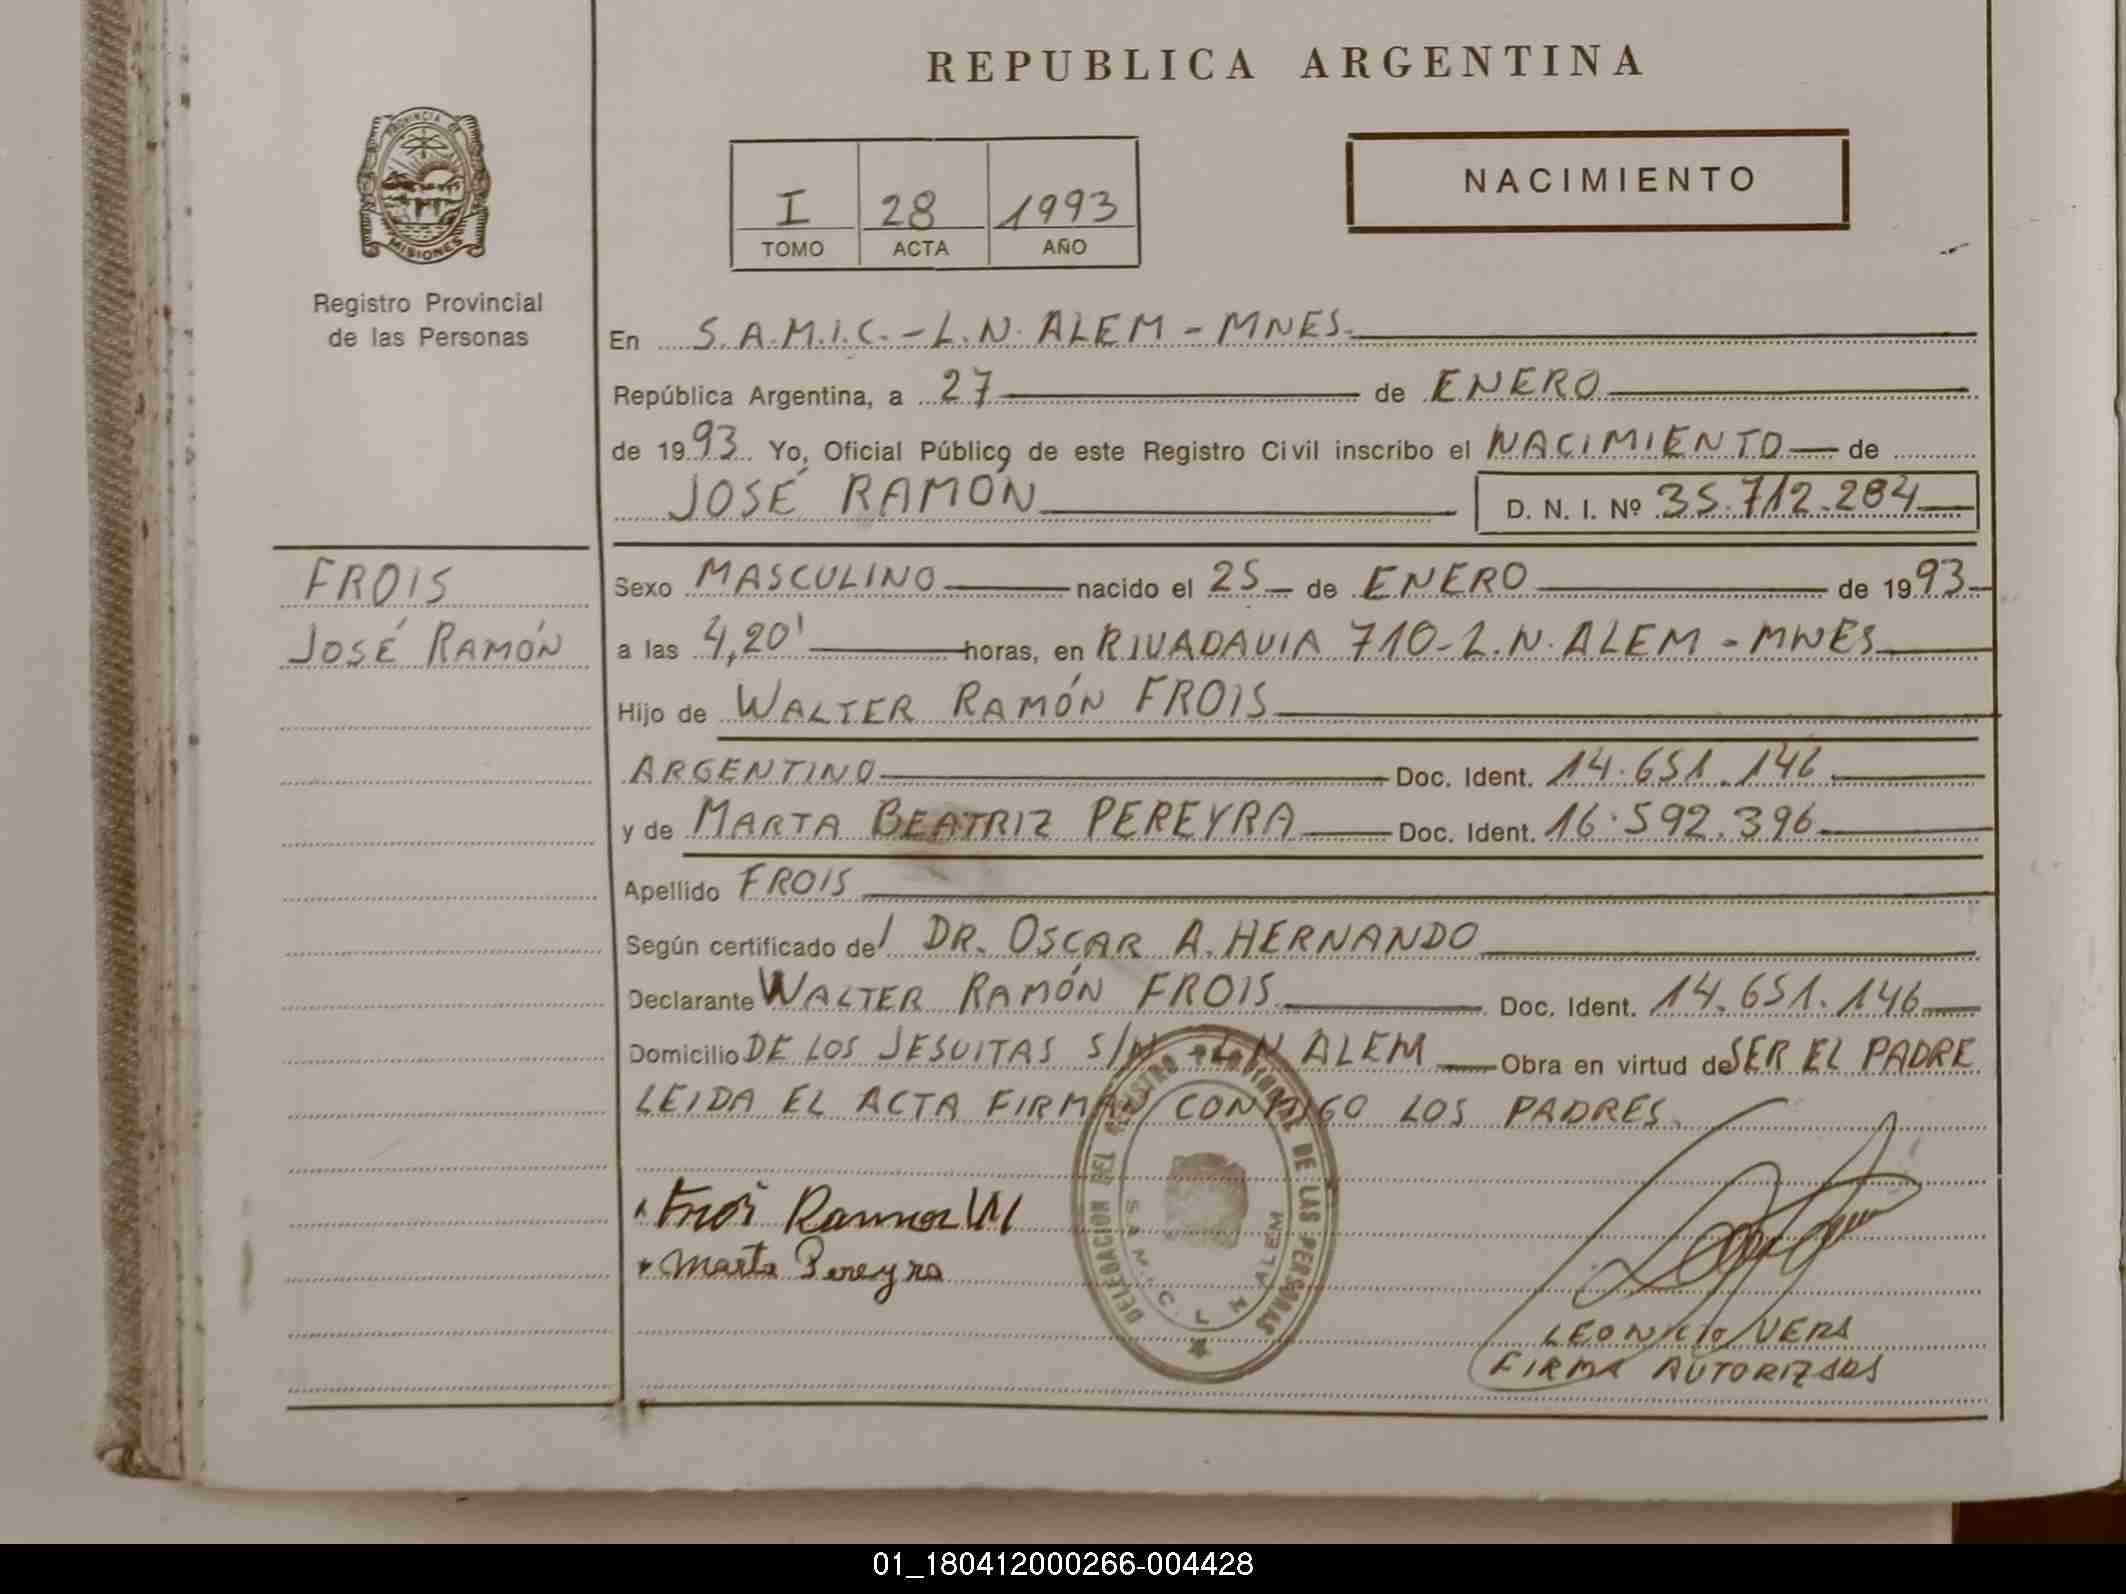 REPUBLICA ARGENTINA
PROVINCIA DE
MISIONES
Registro Provincial
de las Personas
I 28 1993
TOMO ACTA AÑO
NACIMIENTO
En S.A.M.I.C.-L.N. ALEM - MNES.
República Argentina, a 27 de ENERO
de 1993. Yo, Oficial Público de este Registro Civil inscribo el NACIMIENTO de
JOSÉ RAMÓN D. N. I. Nº 35.712.284
FROIS
JOSÉ RAMÓN
Sexo MASCULINO nacido el 25 de ENERO de 1993
a las 4,20' horas, en RIVADAVIA 710-L.N. ALEM - MNES
Hijo de WALTER RAMÓN FROIS
ARGENTINO Doc. Ident. 14.651.146
y de MARTA BEATRIZ PEREYRA Doc. Ident. 16.592.396
Apellido FROIS
Según certificado de/ DR. OSCAR A. HERNANDO
Declarante WALTER RAMÓN FROIS Doc. Ident. 14.651.146
Domicilio DE LOS JESUITAS S/N - L N ALEM Obra en virtud de SER EL PADRE
LEIDA EL ACTA FIRMAN CONMIGO LOS PADRES.
Frois Ramon W
Marta Pereyra
DELEGACION DEL REGISTRO PROVINCIAL DE LAS PERSONAS
S.A.M.I.C. L N ALEM
LEONICIO VERA
FIRMA AUTORIZADA
01_180412000266-004428